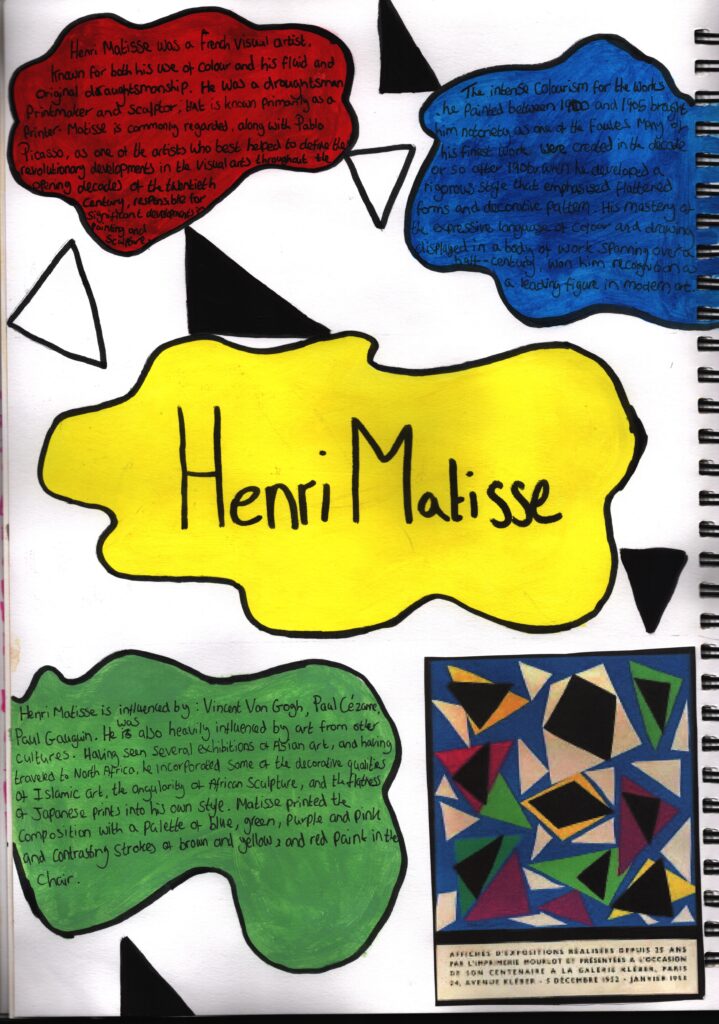 Henri Matisse was a French visual artist.
Known for both his use of colour and his fluid and
original draughtsmanship. He was a draughtsman
Printmaker and Sculptor, that is known primarily as a
Printer. Matisse is commonly regarded, along with Pablo
Picasso, as one of the artists who best helped to define the
revolutionary developments in the visual arts throughout the
opening decades of the twentieth
Century, responsible for
significant developments in
Painting and
Sculpture.
The intense Colourism for the works
he Painted between 1900 and 1905 brought
him notoriety as one of the Fauves Many of
his finest work were created in the decade
or so after 1906, when he developed a
rigorous style that emphasised flattened
forms and decorative pattern. His mastery of
the expressive language of Colour and drawing
displayed in a body of work spanning over a
half-century won him recognition as
a leading figure in modern art.
Henri Matisse
Henri Matisse is influenced by: Vincent Van Gogh, Paul Cézanne,
Paul Gauguin. He was also heavily influenced by art from other
cultures. Having seen several exhibitions of Asian art, and having
traveled to North Africa, he incorporated some of the decorative qualities
of Islamic art, the angularity of African Sculpture, and the flatness
of Japanese prints into his own style. Matisse printed the
Composition with a Palette of blue, green, Purple and Pink
and Contrasting Strokes of brown and yellow, and red Paint in the
Chair.
AFFICHES D'EXPOSITIONS RÉALISÉES DEPUIS 25 ANS
PAR L'IMPRIMERIE MOURLOT ET PRÉSENTÉES A L'OCCASION
DE SON CENTENAIRE A LA GALERIE KLÉBER, PARIS
24, AVENUE KLÉBER - 5 DÉCEMBRE 1952 - JANVIER 1953